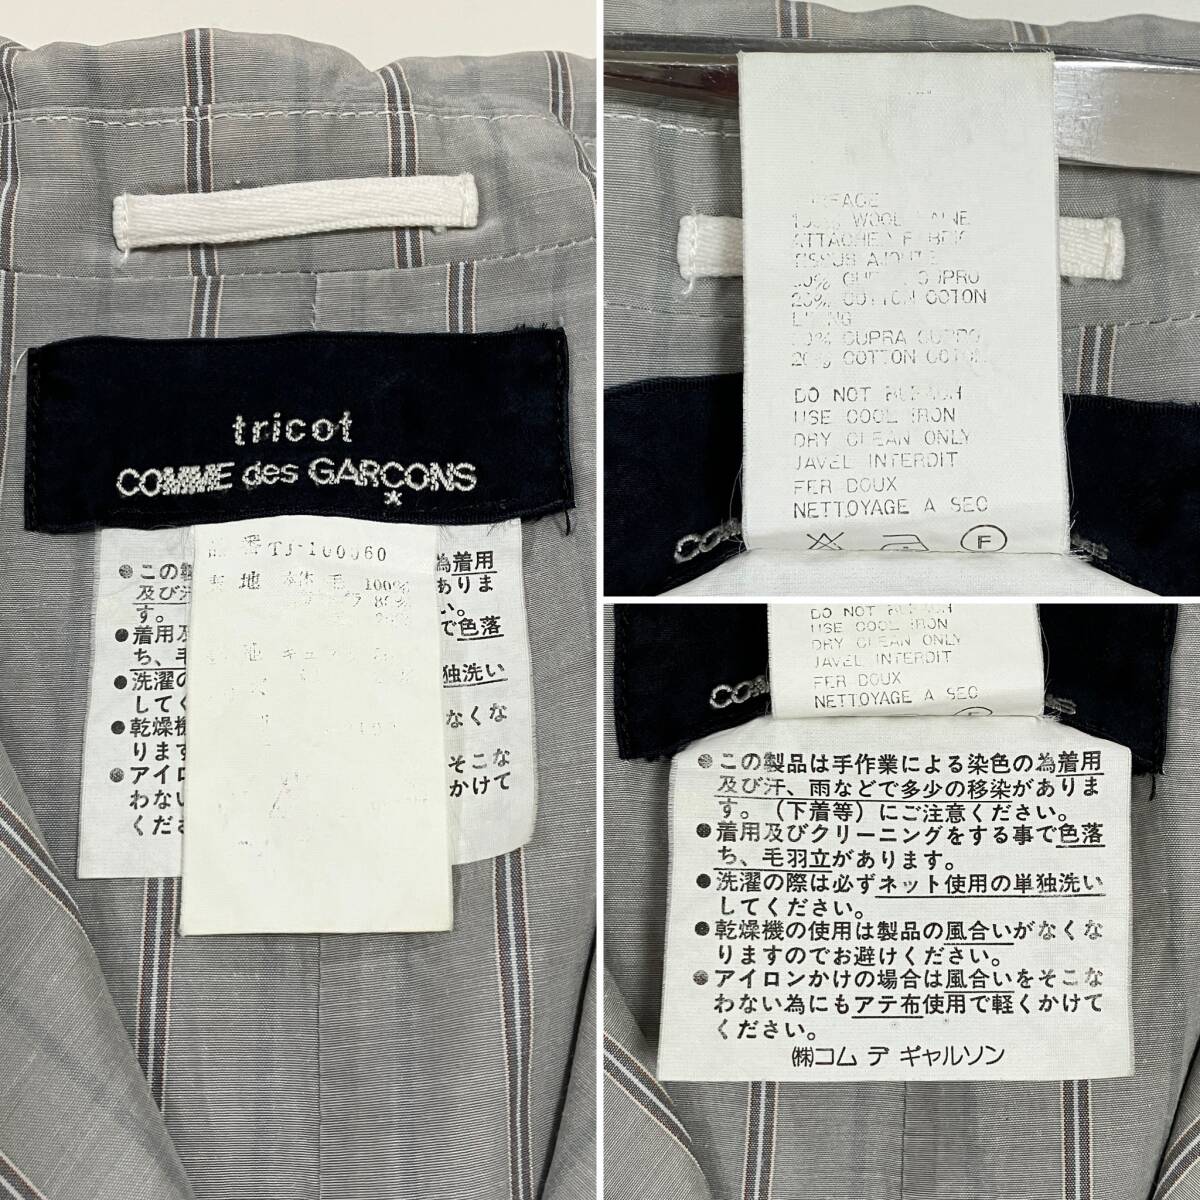 tricot
COMME des GARCONS
番 TJ-100060
地 本体 毛 100%
80%
20%
地 キュプラ
● この製
及び汗
す。
● 着用及
ち、毛
● 洗濯の
してく
● 乾燥機
ります
● アイ
わな
くだ
為着用
ありま
い。
で色落
独洗い
なくな
そこな
かけて
100% WOOL LAINE
ATTACHED FABRIC
TISSUS AJOUTE
CUPRO
20% COTTON COTON
LINING
CUPRA CUPRO
20% COTTON COTON
DO NOT BLEACH
USE COOL IRON
DRY CLEAN ONLY
JAVEL INTERDIT
FER DOUX
NETTOYAGE A SEC
F
DO NOT BLEACH
USE COOL IRON
DRY CLEAN ONLY
JAVEL INTERDIT
FER DOUX
NETTOYAGE A SEC
● この製品は手作業による染色の為着用
及び汗、雨などで多少の移染がありま
す。(下着等)にご注意ください。
● 着用及びクリーニングをする事で色落
ち、毛羽立があります。
● 洗濯の際は必ずネット使用の単独洗い
してください。
● 乾燥機の使用は製品の風合いがなくな
りますのでお避けください。
● アイロンかけの場合は風合いをそこな
わない為にもアテ布使用で軽くかけて
ください。
㈱コム デ ギャルソン